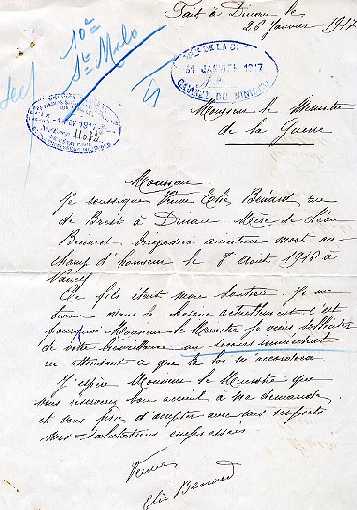 Fait à Dinan le
26 Janvier 1917
10e
St Malo
31 JANVIER 1917
CABINET DU MINISTRE
Monsieur le Ministre
de la Guerre
Monsieur
Je soussigné Veuve Elie Bénard rue
de Brest à Dinan Mère de
Bénard mort au
champ d'honneur le 8 Août 1915 à
Ce fils étant mon soutien Je me
trouve dans la misère actuellement c'est
pourquoi Monsieur le Ministre je viens solliciter
de votre bienveillance un secours immédiat
en attendant ce que la loi m'accordera
J'espère Monsieur le Ministre que
vous réserverez bon accueil à ma demande
et vous prie d'accepter avec mes respects
mes salutations empressées
Veuve
Elie Bénard